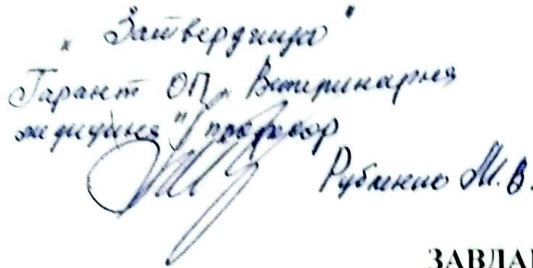 "Затверджую"
Гарант ОП "Ветеринарна
медицина" професор
Рубленко М.В.
ЗАВДАН